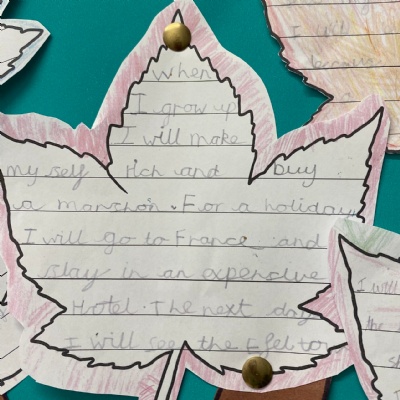 When
I grow up
I will make
my self rich and buy
a manshon. For a holiday
I will go to France and
stay in an expencive
Hotel. The next day
I will see the Efel to
I will